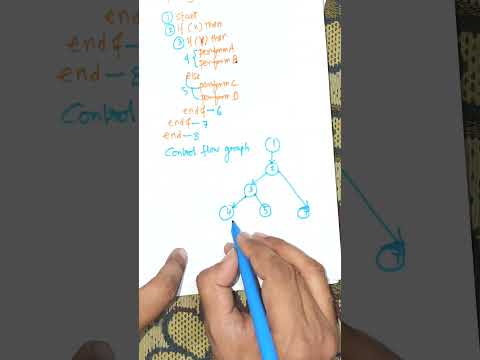 ① start
② if (x) then
③ if (y) then
4 { perform A
perform B
else
5 perform C
perform D
endif — 6
endif — 7
end — 8
Control flow graph
1
2
3
4 5 7